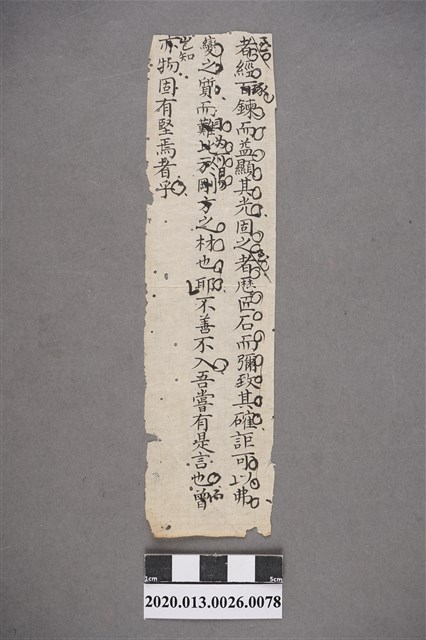 者經百鍊而益顯其光固之者歷匠石而彌致其確詎可以弗
變之質而難比于剛方之材也耶不善不入吾嘗有是言也曾
亦物固有堅焉者乎
1cm 5cm
2020.013.0026.0078